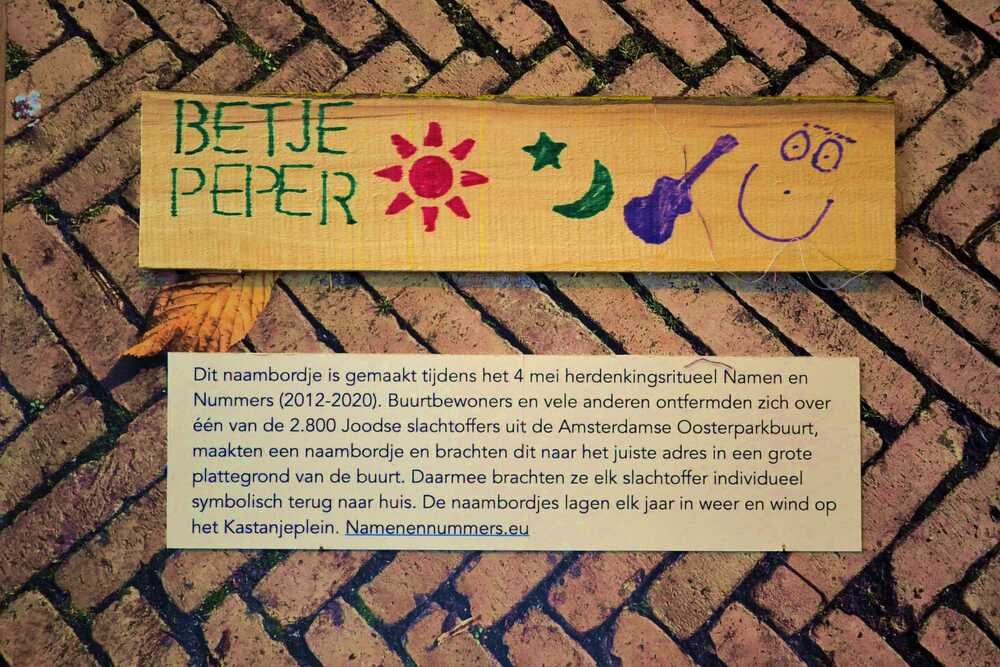 BETJE
PEPER
Dit naambordje is gemaakt tijdens het 4 mei herdenkingsritueel Namen en
Nummers (2012-2020). Buurtbewoners en vele anderen ontfermden zich over
één van de 2.800 Joodse slachtoffers uit de Amsterdamse Oosterparkbuurt,
maakten een naambordje en brachten dit naar het juiste adres in een grote
plattegrond van de buurt. Daarmee brachten ze elk slachtoffer individueel
symbolisch terug naar huis. De naambordjes lagen elk jaar in weer en wind op
het Kastanjeplein. Namenennummers.eu